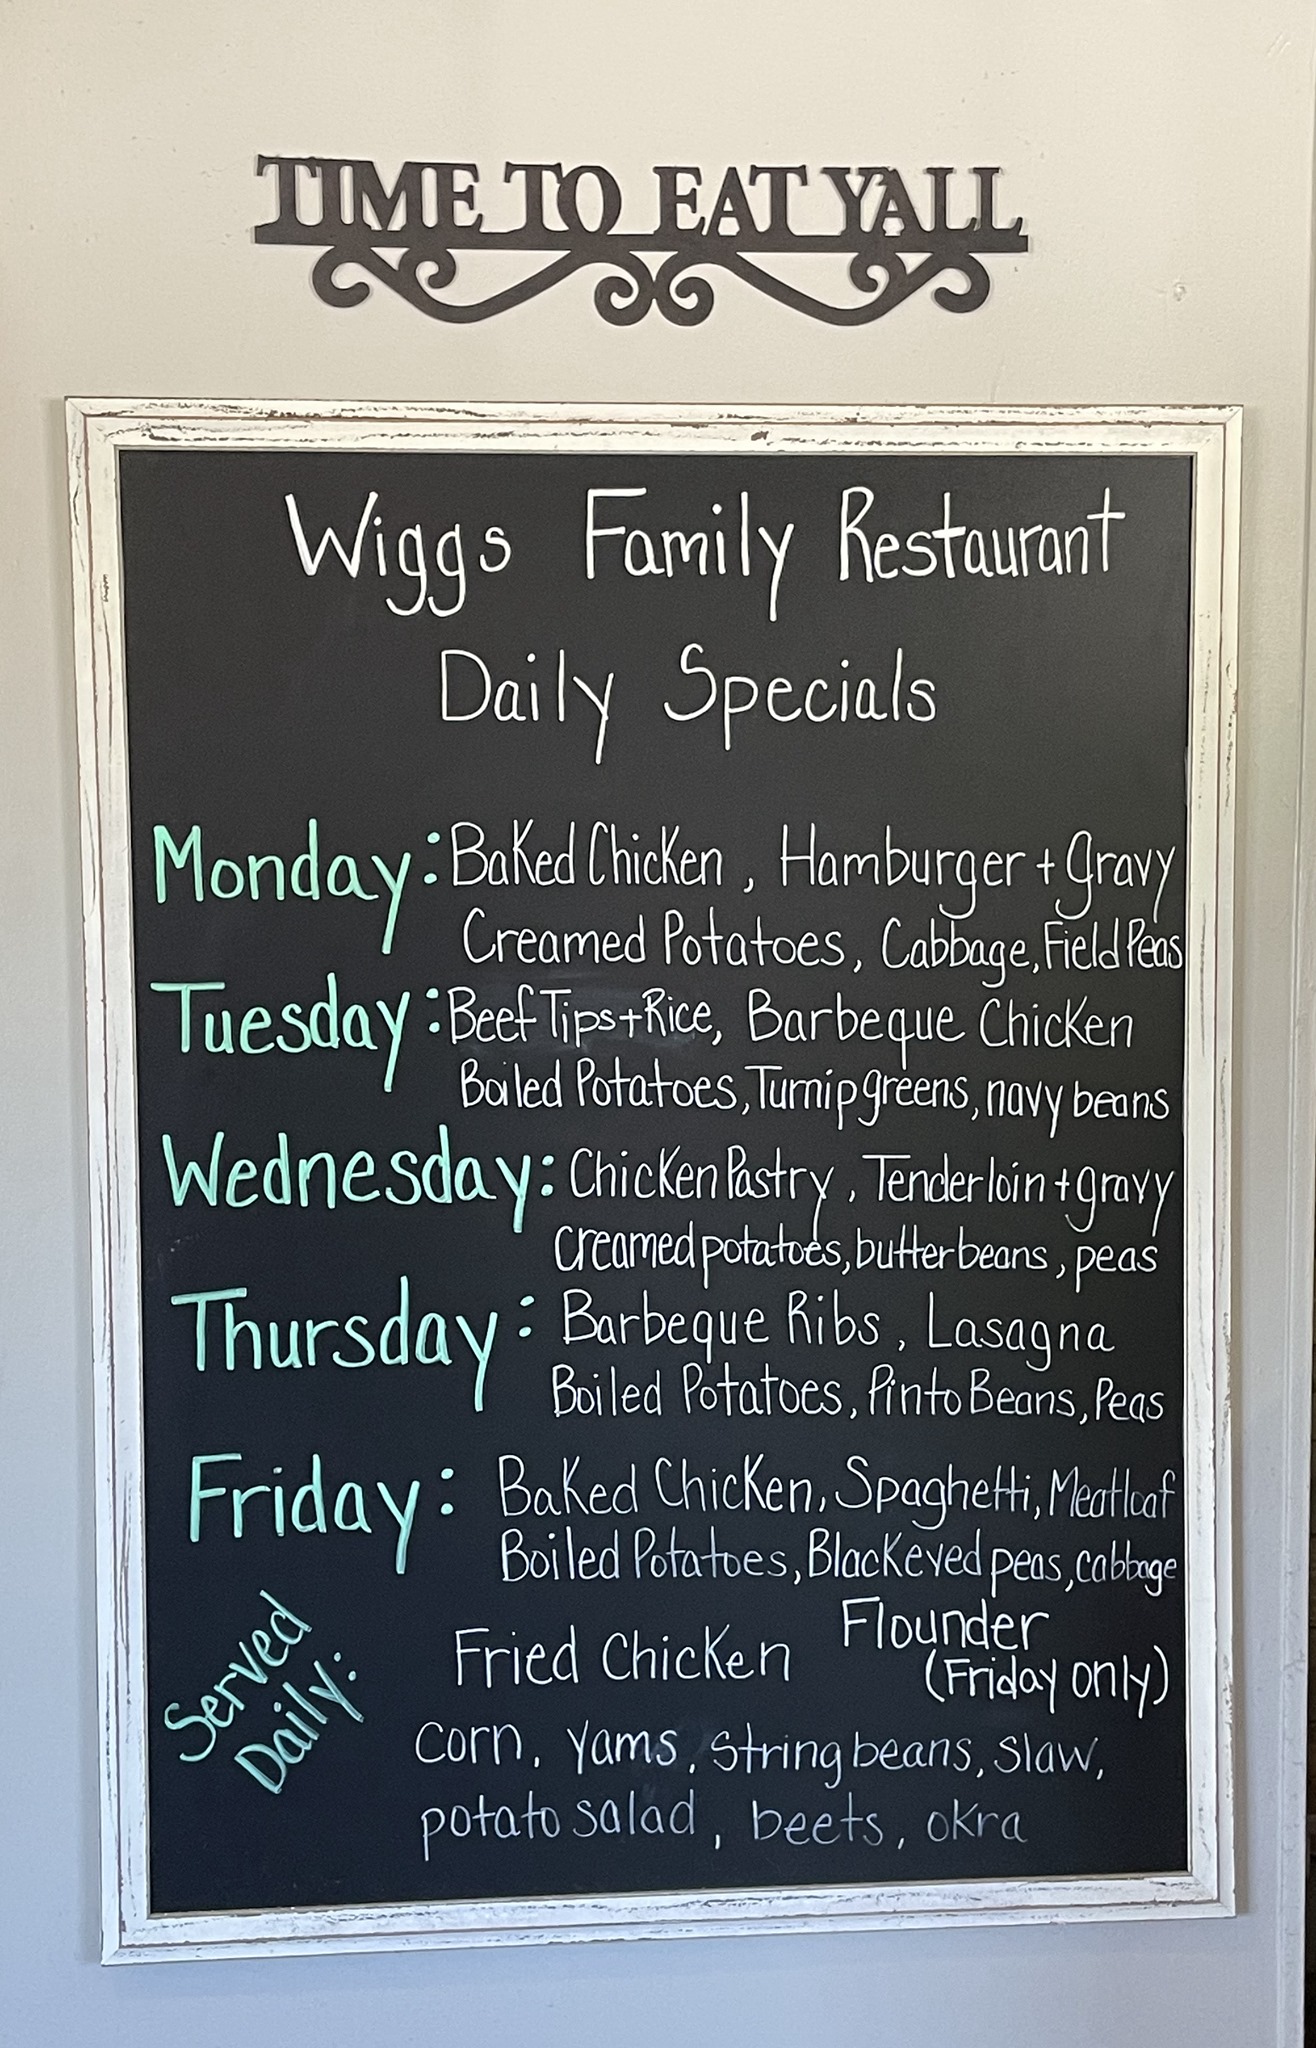 TIME TO EAT YALL
Wiggs Family Restaurant
Daily Specials
Monday: Baked Chicken, Hamburger + gravy
Creamed Potatoes, Cabbage, Field Peas
Tuesday: Beef Tips + Rice, Barbeque Chicken
Boiled Potatoes, Turnip greens, navy beans
Wednesday: Chicken Pastry, Tenderloin + gravy
Creamed potatoes, butter beans, peas
Thursday: Barbeque Ribs, Lasagna
Boiled Potatoes, Pinto Beans, Peas
Friday: Baked Chicken, Spaghetti, Meatloaf
Boiled Potatoes, Blackeyed peas, cabbage
Served
Daily:
Fried Chicken Flounder
(Friday only)
corn, yams, string beans, slaw,
potato salad, beets, okra